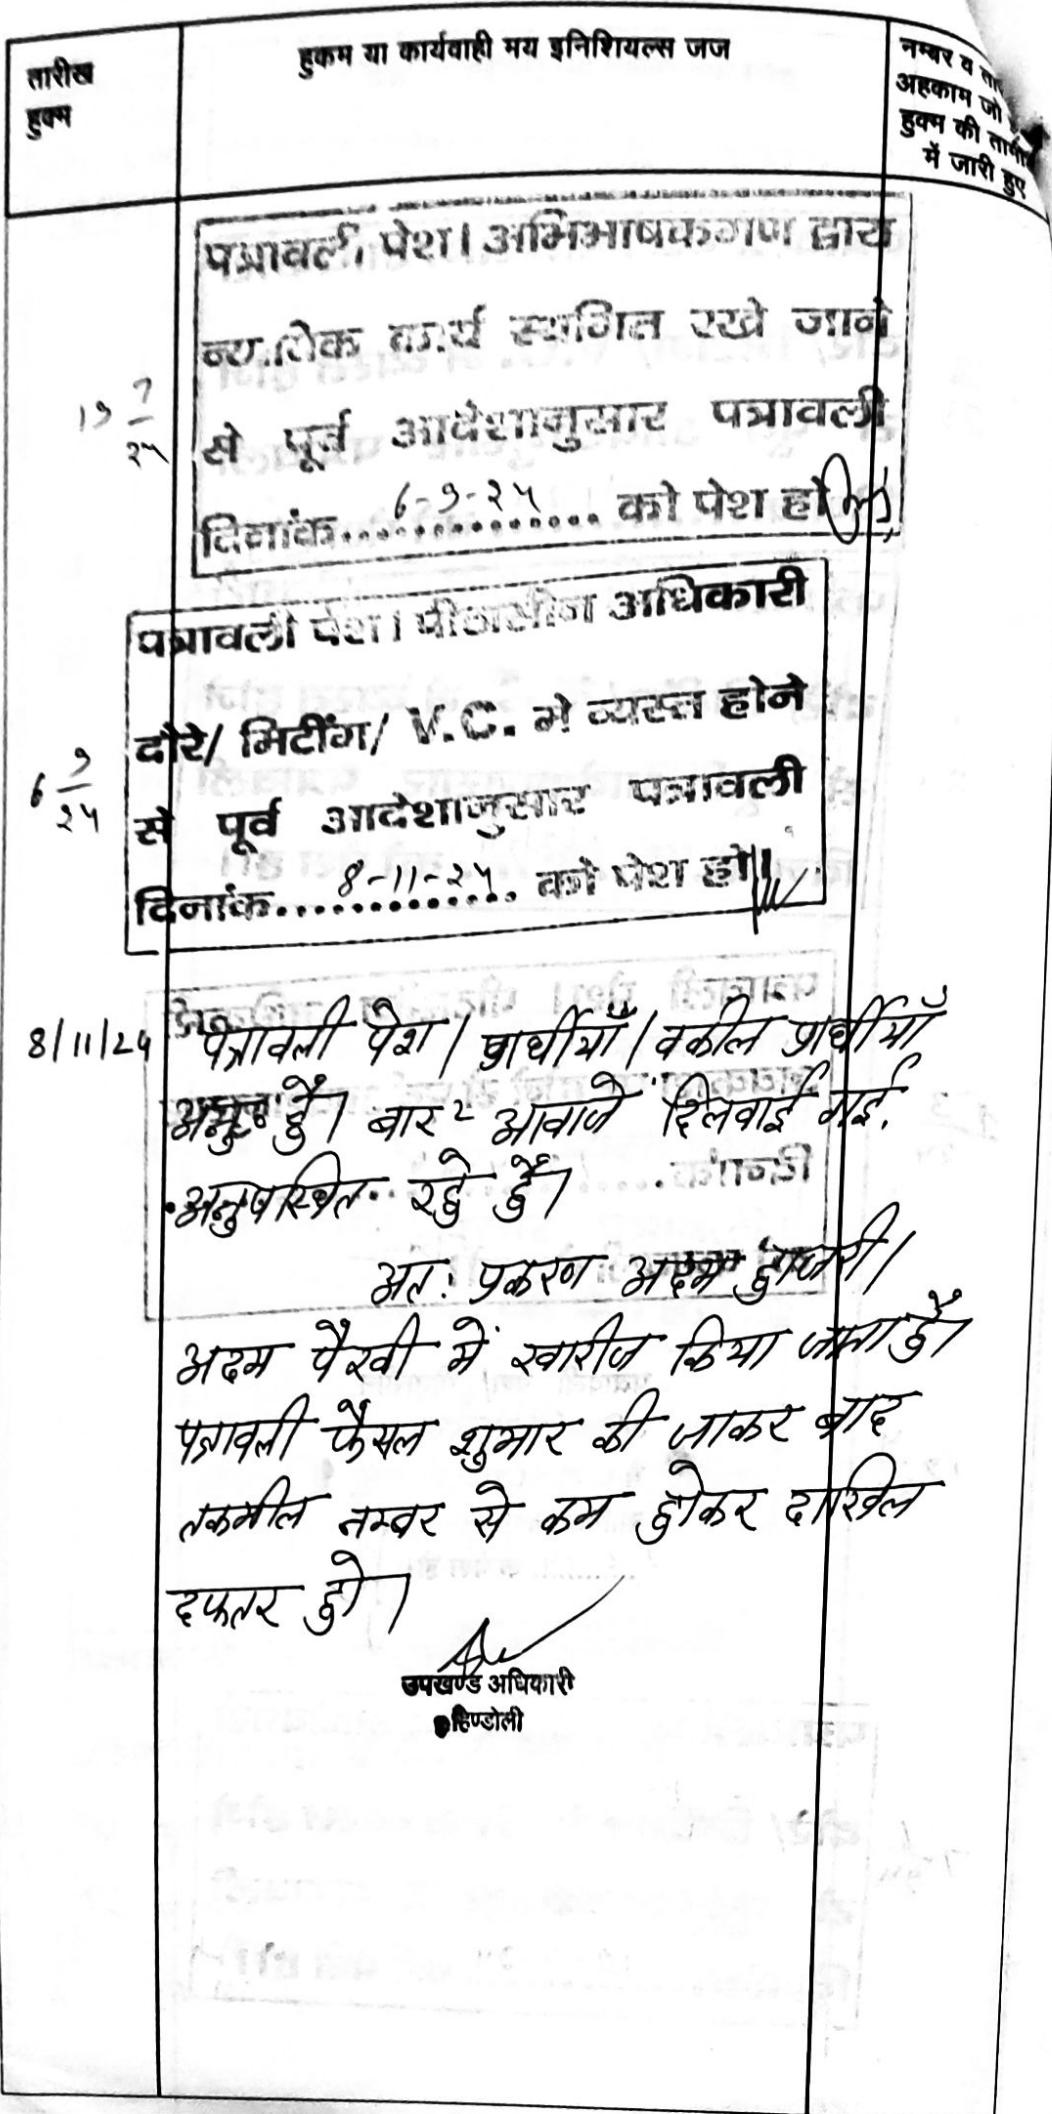 तारीख
हुक्म
हुकम या कार्यवाही मय इनिशियल्स जज
नम्बर व
अहकाम जो
हुक्म की
में जारी हुए
पत्रावली पेश। अभिभाषकगण द्वारा
न्यायिक कार्य स्थगित रखे जाने
से पूर्व आदेशानुसार पत्रावली
दिनांक 6-9-24 को पेश हो
पत्रावली पेश। पीठासीन अधिकारी
दौरे/ मिटींग/ V.C. मे व्यस्त होने
6 9/24
से पूर्व आदेशानुसार पत्रावली
दिनांक 8-11-24 को पेश हो
8/11/24 पत्रावली पेश। प्रार्थीयाँ/वकील प्रार्थीयाँ
अनु० है। बार २ आवाजे दिलवाई गई.
अनुपस्थित रहे है।
अत: प्रकरण अदम हाजरी।
अदम पैरवी में खारीज किया जाता है।
पत्रावली फैसल शुमार की जाकर बाद
तकमील नम्बर से कम होकर दाखिल
दफतर हो।
उपखण्ड अधिकारी
हिण्डोली